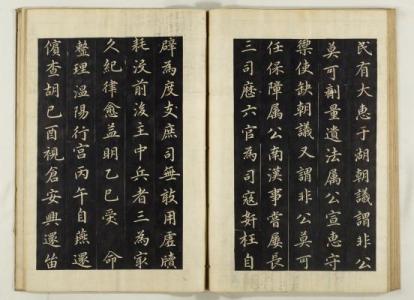 民有大惠于湖朝議謂非公
莫可劑量遺法属公宣惠守
禦使缺朝議又謂非公莫可
任保障属公南漢事嘗屢長
三司歷六官為司寇奸枉自
辟為度支庶司無敢用虛牘
耗没前後主中兵者三為冣
久紀律愈益明乙巳受命
整理温陽行宮丙午自燕還
儐查胡己酉視倉安興還笛